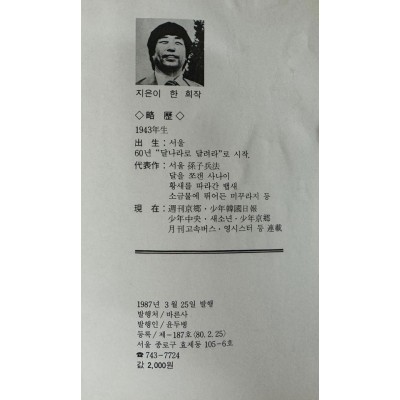 지은이 한 희작
◇略 歷◇
1943年生
出 生：서울
60년 “달나라로 달려라”로 시작.
代表作：서울 孫子兵法
달을 쪼갠 사나이
황새를 따라간 뱁새
소금물에 뛰어든 미꾸라지 등
現 在：週刊京鄕·少年韓國日報
少年中央·새소년·少年京鄕
月刊고속버스·명시스터 등 連載
1987년 3 월 25일 발행
발행처/바른사
발행인/윤두병
등록/제-187호(80.2.25)
서울 종로구 효제동 105-6호
☎743-7724
값 2,000원